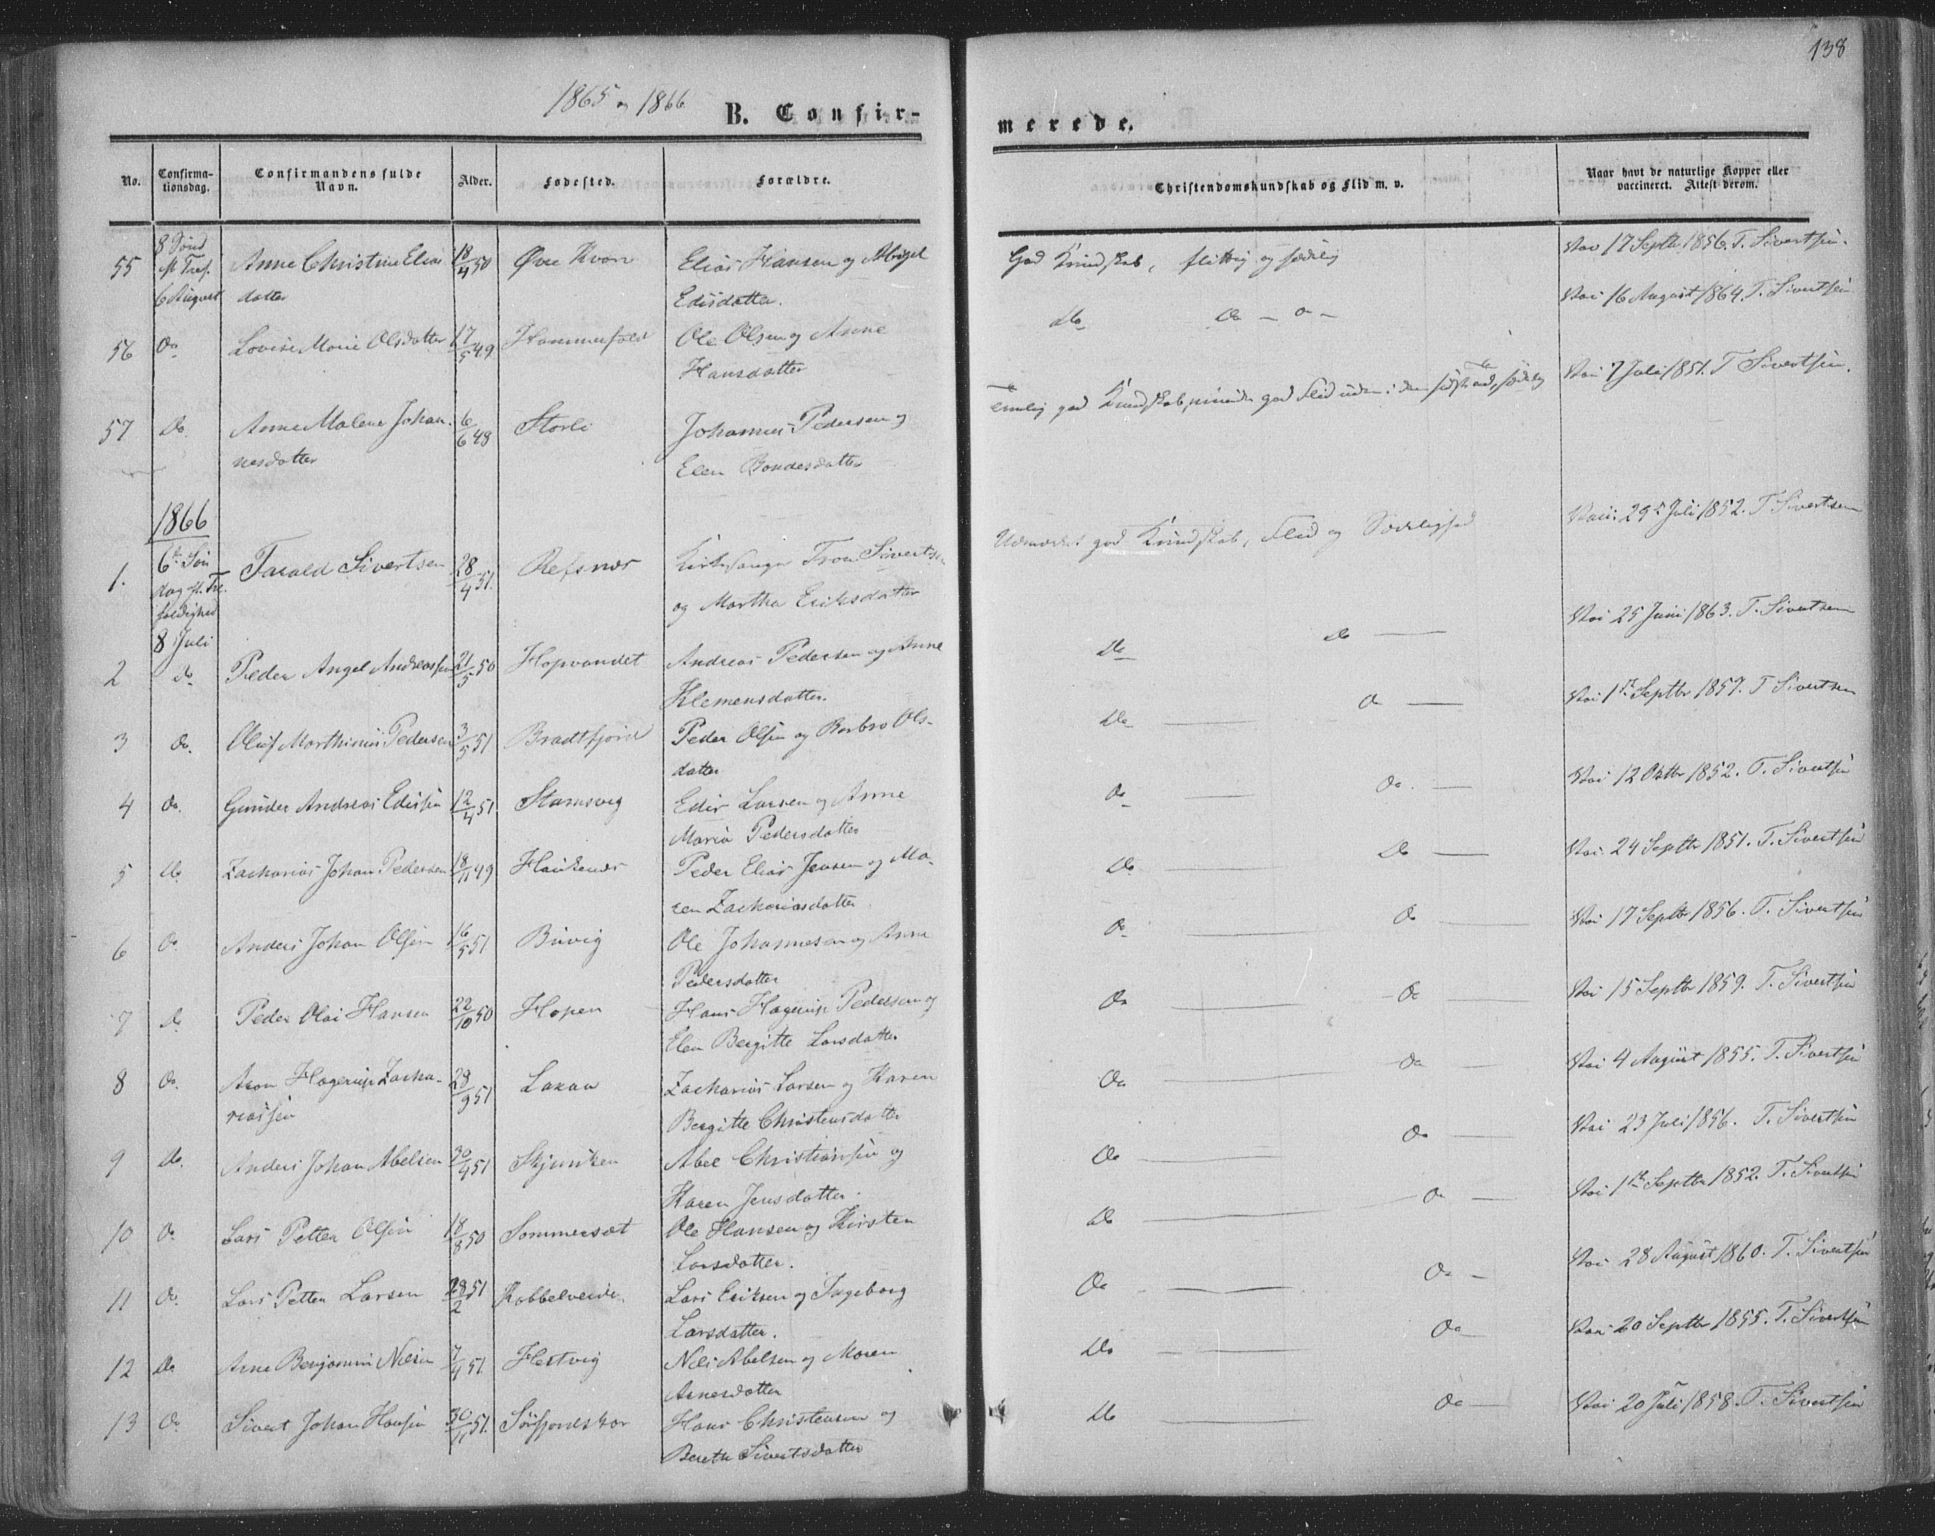 138
1865 og 1866
B. Confir-
merede.
No.
Confirma-
tionsdag.
Confirmandens fulde
Navn.
Alder.
Fødested.
Forældre.
Christendomskundskab og Flid m. v.
Naar havt de naturlige Kopper eller
vaccineret. Attest derom.
55 8 Sønd Anne Christine Elias 18/4 50 Øvre Kvarv Elias Hansen og Abigel God Kundskab, flittig og sædelig Vac 17 Septbr 1856. T. Sivertsen.
M Tref.
6 August datter Edisdatter.
56 Do Lovise Marie Olsdatter 17/5 49 Hammerfald Ole Olsen og Anne Do Do - o - Vac 16 August 1864. T. Sivertsen
Hansdatter
57 Do Anne Malene Johan- 6/6 48 Storli Johannes Pedersen og Temlig god Kundskab, mindre god Flid uden i den sidste Tid, sædelig Vac 7 Juli 1851. T Sivertsen.
nesdatter Elen Bondesdatter
1866
1. 6te Søn Tarald Sivertsen 28/4 51. Refsnæs Kirkesanger Tron Sivertsen Udmærket god Kundskab, Flid og Sædelighed Vac. 29de Juli 1852. T Sivertsen
dag e. Tre- og Martha Eriksdatter
foldighed
8 Juli
2 do Peder Angel Andreassen 21/5 50 Hopvandet Andreas Pedersen og Anne Do do — Vac 25 Juni 1863. T. Sivertsen
Klemensdatter.
3 Do. Oluf Marthinus Pedersen 3/5 51 Bradtfjord Peder Olsen og Barbro Ols- Do — Do — Vac 1ste Septbr 1857. T Sivertsen
datter
4 Do. Gunder Andreas Edissen 12/4 51. Stamsvig Edis Larsen og Anne Do — Do. — Vac 12 Oktbr 1852. T. Sivertsen
Maria Pedersdatter
5 Do Zacharias Johan Pedersen 18/11 49 Haukenæs Peder Elias Jensen og Ma- Do Do — Vac. 24 Septbr 1851. T. Sivertsen
ren Zachariasdatter.
6 Do. Anders Johan Olsen 16/5 51 Buvig Ole Johannesen og Anne Do — Do — Vac 17 Septbr 1856. T. Sivertsen
Pedersdatter
7 Do Peder Olai Hansen 22/10 50 Hopen Hans Hagerup Pedersen og Do — Do — Vac 15 Septbr 1859. T. Sivertsen
Elen Bergitte Larsdatter
8 Do. Aron Hagerup Zacha- 29/9 51 Lakaa Zacharias Larsen og Karen Do — Do — Vac 4 August 1855. T. Sivertsen
riassen Bergitte Christensdatter
9 Do. Anders Johan Abelsen 30/4 51 Skjunken Abel Christiansen og Do — Do — Vac 23 Juli 1856. T. Sivertsen
Karen Jensdatter.
10 Do Lars Petter Olsen 18/8 50 Sommersæt Ole Hansen og Kirsten Do — Do — Vac 1ste Septbr 1852. T. Sivertsen
Larsdatter.
11 Do. Lars Petter Larsen 28/2 51 Kobbelveide. Lars Eriksen og Ingeborg Do — Do — Vac 28 August 1860. T. Sivertsen
Larsdatter.
12 Do Arne Benjamin Nilsen 7/4 51. Hestvig Nils Abelsen og Maren Do Do — Vac 20 Septbr 1855. T. Sivertsen
Arnesdatter
13 Do Sivert Johan Hansen 30/11 51. Sørfjordskar Hans Christensen og Do — Do — Vac 20 Juli 1858. T. Sivertsen
Bereth Sivertsdatter